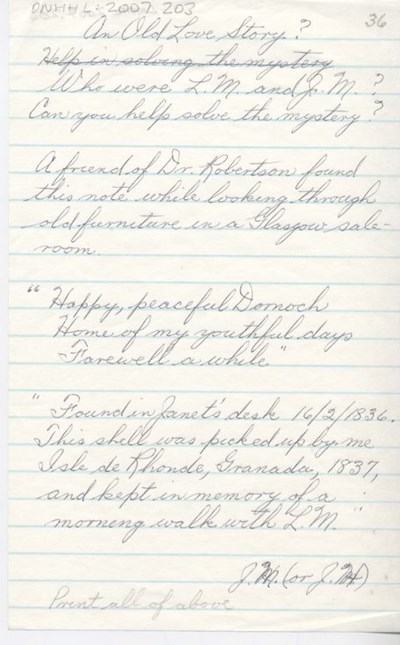 DNHHL: 2007.203
36
An Old Love Story?
Help in solving the mystery
Who were L.M. and J.M.?
Can you help solve the mystery?
A friend of Dr. Robertson found
this note while looking through
old furniture in a Glasgow sale-
room.
"Happy, peaceful Dornoch
Home of my youthful days
Farewell a while"
"Found in Janet's desk 16/2/1836.
This shell was picked up by me
Isle de Rhonde, Granada, 1837,
and kept in memory of a
morning walk with L.M."
J.M. (or J.H)
Print all of above